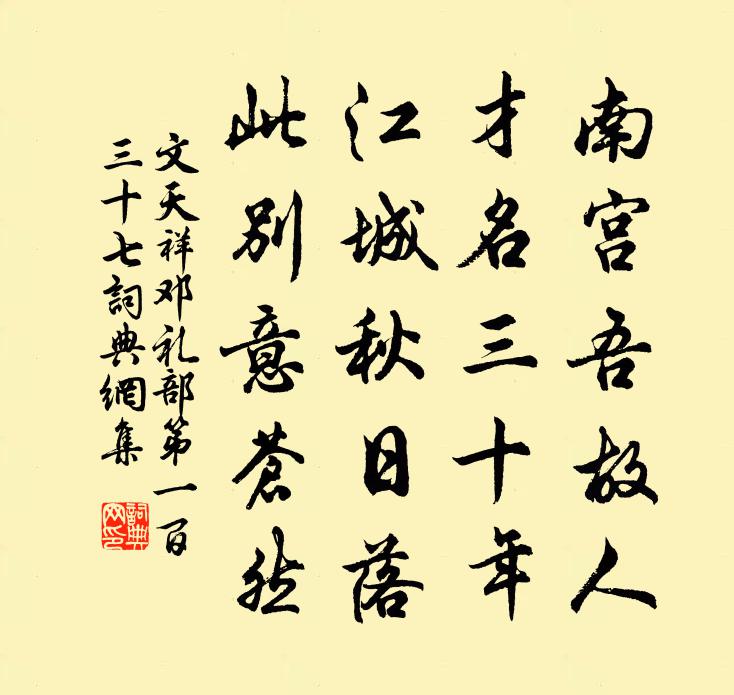 南宫吾故人
才名三十年
江城秋日落
此别意蒼然
文天祥邓礼部第一百
三十七詞典網集
詞典
网印